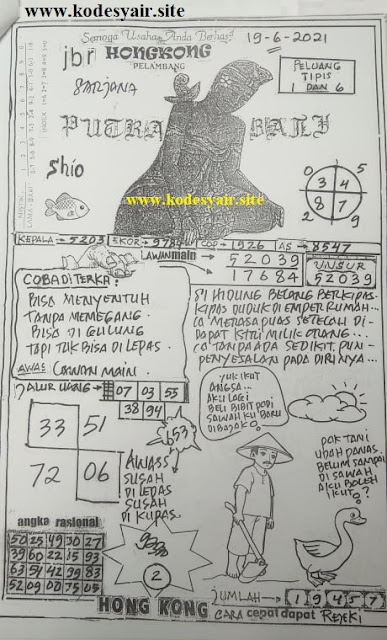 www.kodesyair.site
Semoga Usaha Anda Berhasil
19-6-2021
jbr HONGKONG
PELAMBANG
SARJANA
PELUANG
TIPIS
1 DAN 6
PUTRA BALI
Shio
0 5
3 4
8 7
2 9
www.kodesyair.site
KEPALA → 5203 EKOR → 9784 COP → 1926 AS → 8547
LAWAN main
52039
17684
UNSUR
52039
COBA DI TERKA:
BISA MENYENTUH
TANPA MEMEGANG.
BISA DI GULUNG
TAPI TUK BISA DI LEPAS.
AWAS LAWAN MAIN.
SI HIDUNG BELANG BERKIPAS-
KIPAS DUDUK DI EMPER RUMAH...
CO' MERASA PUAS SETELAH DI-
DAPAT ISTRI MILIK ORANG...
CO' TANPA ADA SEDIKIT PUN
PENYESALAN PADA DIRINYA...
JALUR UANG → 07 03 55
38 94
33 51
72 06
653
AWASS
SUSAH
DI LEPAS
SUSAH
DI KUPAS.
YUK IKUT
ANGSA...
AKU LAGI
BELI BIBIT PADI
SAWAH KU BARU
DI BAJAK?
PAK TANI
UDAH PANAS
BELUM SAMPAI
DI SAWAH
AKU BOLEH
IKUT?
angka rasional
50 25 49 30 27
39 60 22 15 93
63 54 42 99 83
52 09 00 75 05
2
JUMLAH → 1 9 4 5 7
HONG KONG CARA cepat dapat REJEKI